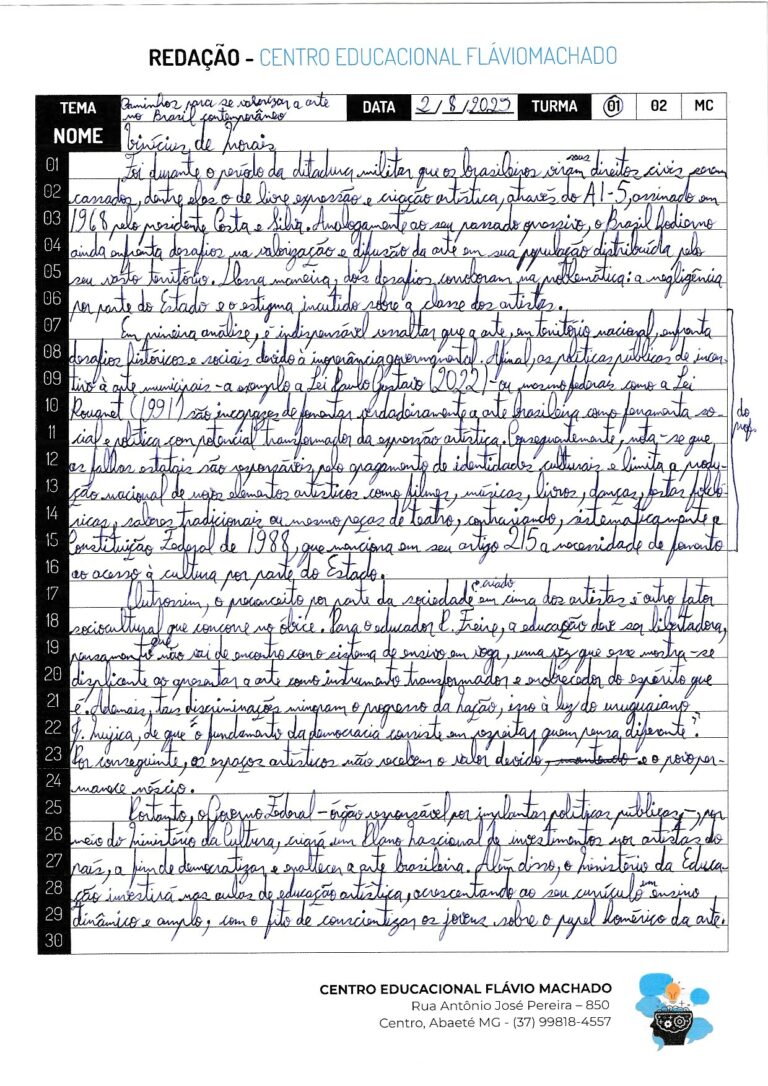 REDAÇÃO - CENTRO EDUCACIONAL FLÁVIOMACHADO
TEMA Caminhos para se valorizar a arte no Brasil contemporâneo DATA 2/8/2025 TURMA 01 02 MC
NOME Vinícius de Morais
01 Foi durante o período da ditadura militar que os brasileiros viram seus direitos civis serem
02 cassados, dentre eles o de livre expressão e criação artística, através do AI-5, assinado em
03 1968 pelo presidente Costa e Silva. Analogamente ao seu passado opressivo, o Brazil hodierno
04 ainda enfrenta desafios na valorização e difusão da arte em sua população distribuída pelo
05 seu vasto território. Dessa maneira, dois desafios corroboram na problemática: a negligência
06 por parte do Estado e o estigma incutido sobre a classe dos artistas.
07 Em primeira análise, é indispensável ressaltar que a arte, em território nacional, enfrenta
08 desafios históricos e sociais devido à inoperância governamental. Afinal, as políticas públicas de incen-
09 tivo à arte municipais - a exemplo a Lei Paulo Gustavo (2022) - ou mesmo federais como a Lei
10 Rouanet (1991) são incapazes de fomentar verdadeiramente a arte brasileira como ferramenta so-
11 cial e política com potencial transformador da expressão artística. Consequentemente, nota-se que
12 as falhas estatais são responsáveis pelo apagamento de identidades culturais e limita a produ-
13 ção nacional de novos elementos artísticos como filmes, músicas, livros, danças, festas folcló-
14 ricas, saberes tradicionais ou mesmo peças de teatro, contrariando, sistematicamente a
15 Constituição Federal de 1988, que menciona em seu artigo 215 a necessidade de fomento
do prof.
16 ao acesso à cultura por parte do Estado.
17 Outrossim, o preconceito por parte da sociedade criado em cima dos artistas é outro fator
18 sociocultural que concorre no óbice. Para o educador P. Freire, a educação deve ser libertadora,
19 pensamento que não vai de encontro com o sistema de ensino em voga, uma vez que esse mostra-se
20 displicente ao apresentar a arte como instrumento transformador e enobrecedor do espírito que
21 é. Ademais, tais discriminações minoram o progresso da nação, isso à luz do uruguaiano
22 J. Mujica, de que "o fundamento da democracia consiste em respeitar quem pensa diferente".
23 Por conseguinte, os espaços artísticos não recebem o valor devido, e o povo per-
24 manece néscio.
25 Portanto, o Governo Federal - órgão responsável por implantar políticas públicas -, por
26 meio do Ministério da Cultura, criará um Plano Nascional de investimentos nos artistas do
27 país, a fim de democratizar e enaltecer a arte brasileira. Além disso, o Ministério da Educa-
28 ção investirá nas aulas de educação artística, acrescentando ao seu currículo um ensino
29 dinâmico e amplo, com o fito de conscientizar os jovens sobre o papel homérico da arte.
30
CENTRO EDUCACIONAL FLÁVIO MACHADO
Rua Antônio José Pereira – 850
Centro, Abaeté MG - (37) 99818-4557